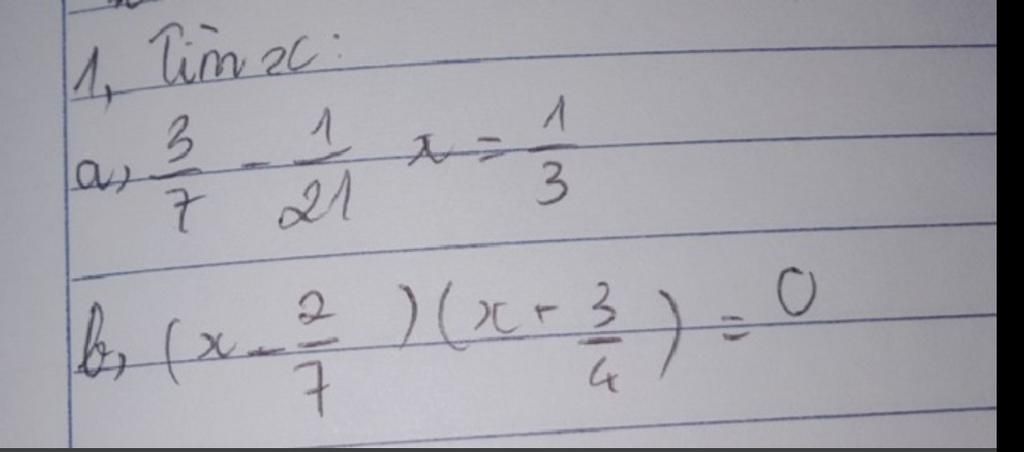 1, Tìm x:
a, 3/7 - 1/21 x = 1/3
b, (x - 2/7)(x + 3/4) = 0